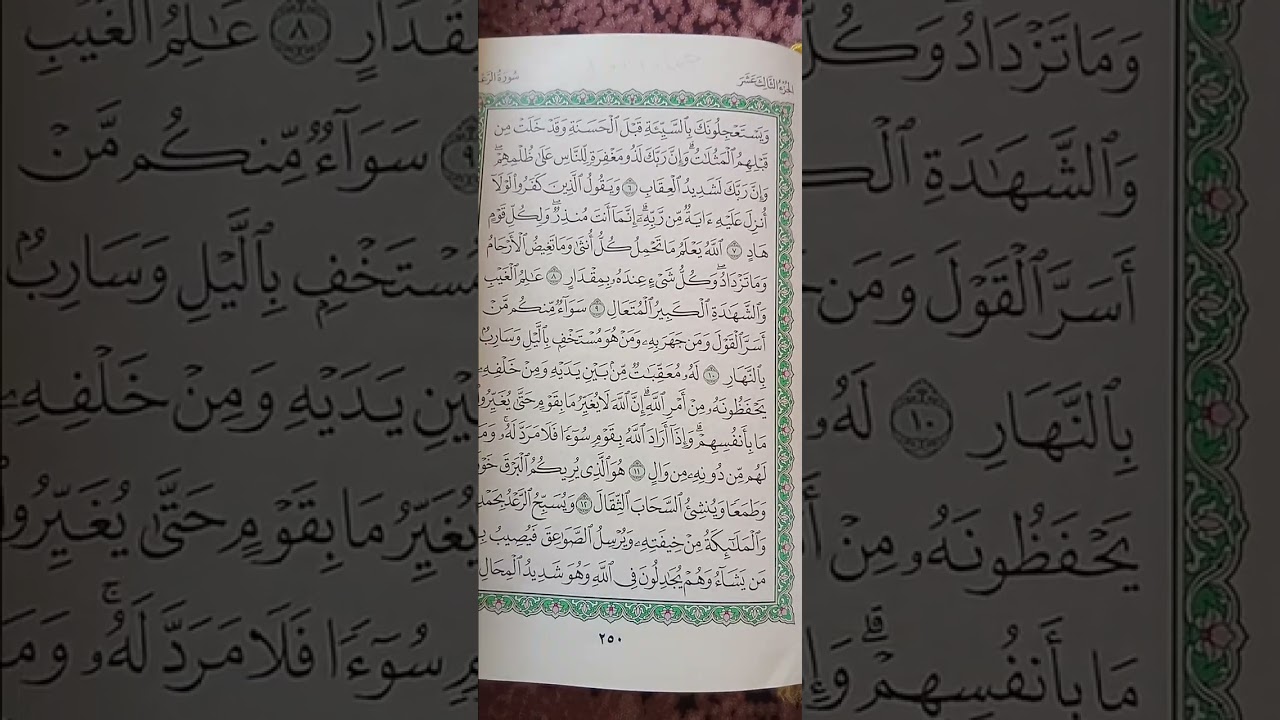 الجزء الثالث عشر
سورة الرعد
وَيَسْتَعْجِلُونَكَ بِٱلسَّيِّئَةِ قَبْلَ ٱلْحَسَنَةِ وَقَدْ خَلَتْ مِن
قَبْلِهِمُ ٱلْمَثُلَٰتُ ۗ وَإِنَّ رَبَّكَ لَذُو مَغْفِرَةٍ لِّلنَّاسِ عَلَىٰ ظُلْمِهِمْ ۖ
وَإِنَّ رَبَّكَ لَشَدِيدُ ٱلْعِقَابِ ٦ وَيَقُولُ ٱلَّذِينَ كَفَرُوا۟ لَوْلَآ
أُنزِلَ عَلَيْهِ ءَايَةٌ مِّن رَّبِّهِۦٓ ۗ إِنَّمَآ أَنتَ مُنذِرٌ ۖ وَلِكُلِّ قَوْمٍ
هَادٍ ٧ ٱللَّهُ يَعْلَمُ مَا تَحْمِلُ كُلُّ أُنثَىٰ وَمَا تَغِيضُ ٱلْأَرْحَامُ
وَمَا تَزْدَادُ ۖ وَكُلُّ شَىْءٍ عِندَهُۥ بِمِقْدَارٍ ٨ عَٰلِمُ ٱلْغَيْبِ
وَٱلشَّهَٰدَةِ ٱلْكَبِيرُ ٱلْمُتَعَالِ ٩ سَوَآءٌ مِّنكُم مَّنْ
أَسَرَّ ٱلْقَوْلَ وَمَن جَهَرَ بِهِۦ وَمَنْ هُوَ مُسْتَخْفٍۭ بِٱلَّيْلِ وَسَارِبٌۢ
بِٱلنَّهَارِ ١٠ لَهُۥ مُعَقِّبَٰتٌ مِّنۢ بَيْنِ يَدَيْهِ وَمِنْ خَلْفِهِۦ
يَحْفَظُونَهُۥ مِنْ أَمْرِ ٱللَّهِ ۗ إِنَّ ٱللَّهَ لَا يُغَيِّرُ مَا بِقَوْمٍ حَتَّىٰ يُغَيِّرُوا۟
مَا بِأَنفُسِهِمْ ۗ وَإِذَآ أَرَادَ ٱللَّهُ بِقَوْمٍ سُوٓءًا فَلَا مَرَدَّ لَهُۥ ۚ وَمَا
لَهُم مِّن دُونِهِۦ مِن وَالٍ ١١ هُوَ ٱلَّذِى يُرِيكُمُ ٱلْبَرْقَ خَوْ
وَطَمَعًا وَيُنشِئُ ٱلسَّحَابَ ٱلثِّقَالَ ١٢ وَيُسَبِّحُ ٱلرَّعْدُ بِحَمْدِ
وَٱلْمَلَٰٓئِكَةُ مِنْ خِيفَتِهِۦ وَيُرْسِلُ ٱلصَّوَٰعِقَ فَيُصِيبُ بِ
مَن يَشَآءُ وَهُمْ يُجَٰدِلُونَ فِى ٱللَّهِ وَهُوَ شَدِيدُ ٱلْمِحَالِ
٢٥٠